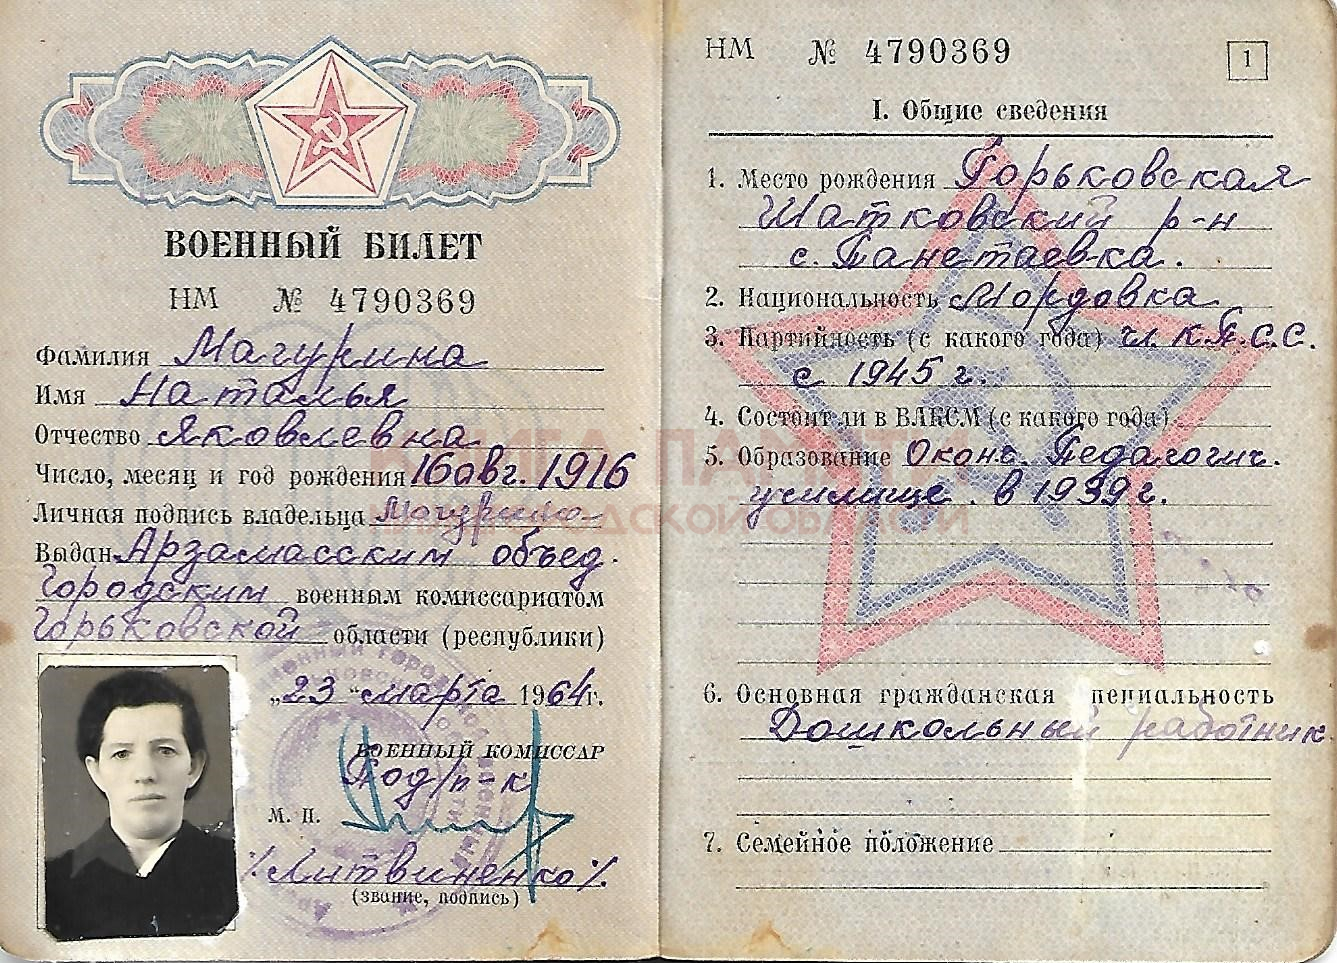 ВОЕННЫЙ БИЛЕТ
НМ № 4790369
Фамилия Магурина
Имя Наталья
Отчество Яковлевна
Число, месяц и год рождения 16 авг. 1916
Личная подпись владельца Магурина
Выдан Арзамасским объед.
Городским военным комиссариатом
Горьковской области (республики)
„23“ марта 1964 г.
ВОЕННЫЙ КОМИССАР
Подп-к
М. П.
/Литвиненко/.
(звание, подпись)
НМ № 4790369
1
I. Общие сведения
1. Место рождения Горьковская
Шатковский р-н
с. Панетаевка.
2. Национальность Мордовка
3. Партийность (с какого года) чл. К.П.С.С.
с 1945 г.
4. Состоит ли в ВЛКСМ (с какого года)
5. Образование Оконч. Педагогич.
училище. в 1939 г.
6. Основная гражданская пециальность
Дошкольный работник.
7. Семейное положение
КНИГА ПАМЯТИ
ОБЛАСТИ